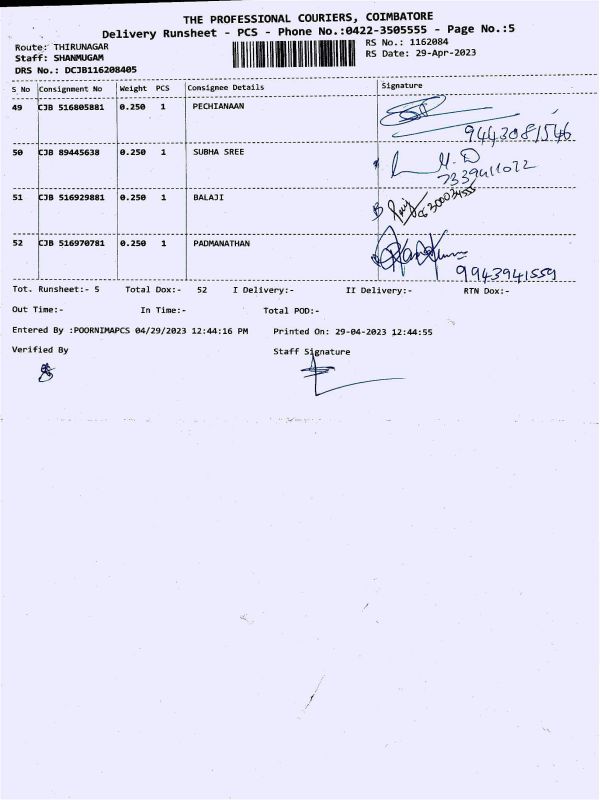 THE PROFESSIONAL COURIERS, COIMBATORE
Delivery Runsheet - PCS - Phone No.:0422-3505555 - Page No.:5
Route: THIRUNAGAR RS No.: 1162084
Staff: SHANMUGAM RS Date: 29-Apr-2023
DRS No.: DCJB116208405
S No Consignment No Weight PCS Consignee Details Signature
49 CJB 516805881 0.250 1 PECHIANAAN
9443081546
50 CJB 89445638 0.250 1 SUBHA SREE
7339411072
51 CJB 516929881 0.250 1 BALAJI
52 CJB 516970781 0.250 1 PADMANATHAN
9943941559
Tot. Runsheet:- 5 Total Dox:- 52 I Delivery:- II Delivery:- RTN Dox:-
Out Time:- In Time:- Total POD:-
Entered By :POORNIMAPCS 04/29/2023 12:44:16 PM Printed On: 29-04-2023 12:44:55
Verified By Staff Signature